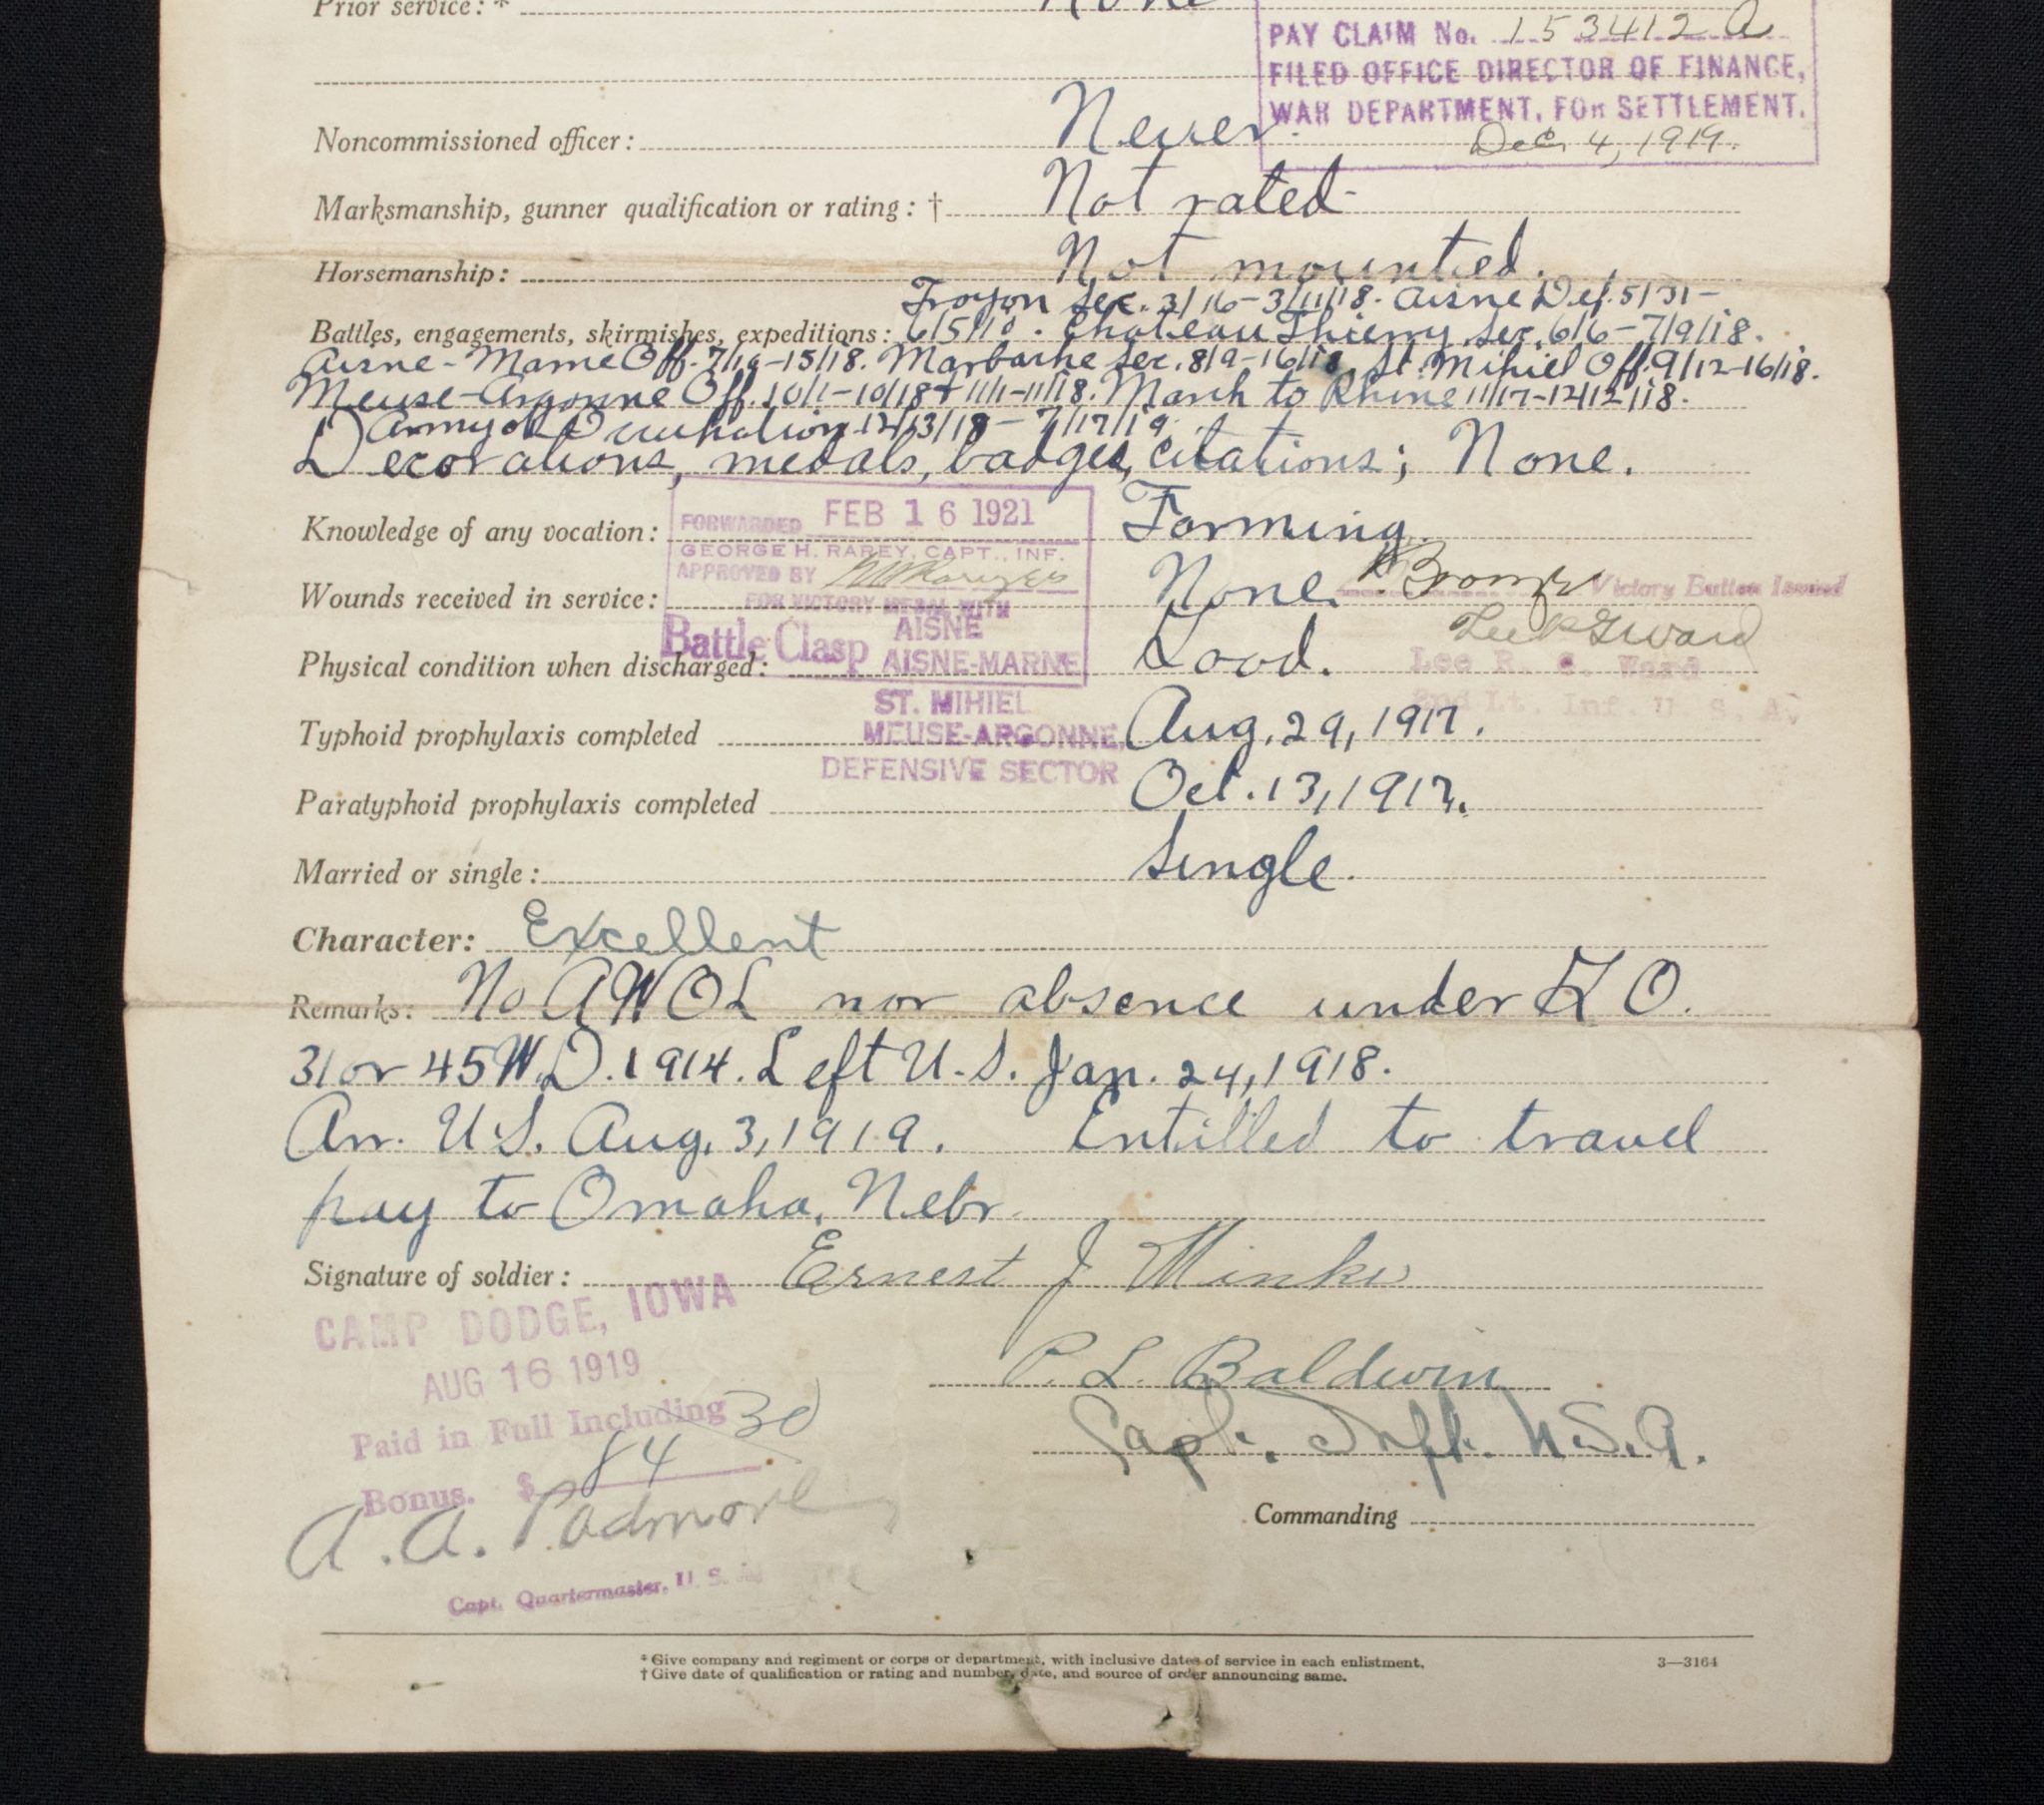 Prior service: * None
PAY CLAIM No. 153412 A
FILED OFFICE DIRECTOR OF FINANCE,
WAR DEPARTMENT, FOR SETTLEMENT.
Dec. 4, 1919.
Noncommissioned officer: Never.
Marksmanship, gunner qualification or rating: † Not rated
Horsemanship: Not mounted.
Troyon Sec. 3/16-3/11/18. Aisne Def. 5/31-
Battles, engagements, skirmishes, expeditions: 6/5/18. Chateau Thierry Sec. 6/6-7/9/18.
Aisne-Marne Off. 7/19-15/18. Marbache Sec. 8/9-16/18. St. Mihiel Off. 9/12-16/18.
Meuse-Argonne Off. 10/1-10/18 + 11/1-11/18. March to Rhine 11/17-12/12/18.
Army of Occupation 12/13/18-7/17/19.
Decorations, medals, badges, citations; None.
FORWARDED FEB 16 1921
Knowledge of any vocation: Farming.
GEORGE H. RAREY, CAPT., INF.
APPROVED BY
Wounds received in service: None.
Bronze Victory Button Issued
FOR VICTORY MEDAL WITH
Battle Clasp AISNE
AISNE-MARNE
Physical condition when discharged: Good.
Lee R. G. Ward
2nd Lt. Inf. U. S. A.
ST. MIHIEL
MEUSE-ARGONNE,
DEFENSIVE SECTOR
Typhoid prophylaxis completed Aug. 29, 1917.
Paratyphoid prophylaxis completed Oct. 13, 1917.
Married or single: Single.
Character: Excellent
Remarks: No AWOL nor absence under G O.
31 or 45 W.D. 1914. Left U.S. Jan. 24, 1918.
Arr. U.S. Aug. 3, 1919. Entitled to travel
pay to Omaha, Nebr.
Signature of soldier: Ernest J Minke
CAMP DODGE, IOWA
AUG 16 1919
P. L. Baldwin
Paid in Full Including 30
Capt. Inft. U.S.A.
Bonus. $ 84
A. A. Padmore
Commanding
Capt. Quartermaster, U. S.
* Give company and regiment or corps or department, with inclusive dates of service in each enlistment.
† Give date of qualification or rating and number, date, and source of order announcing same.
3—3164